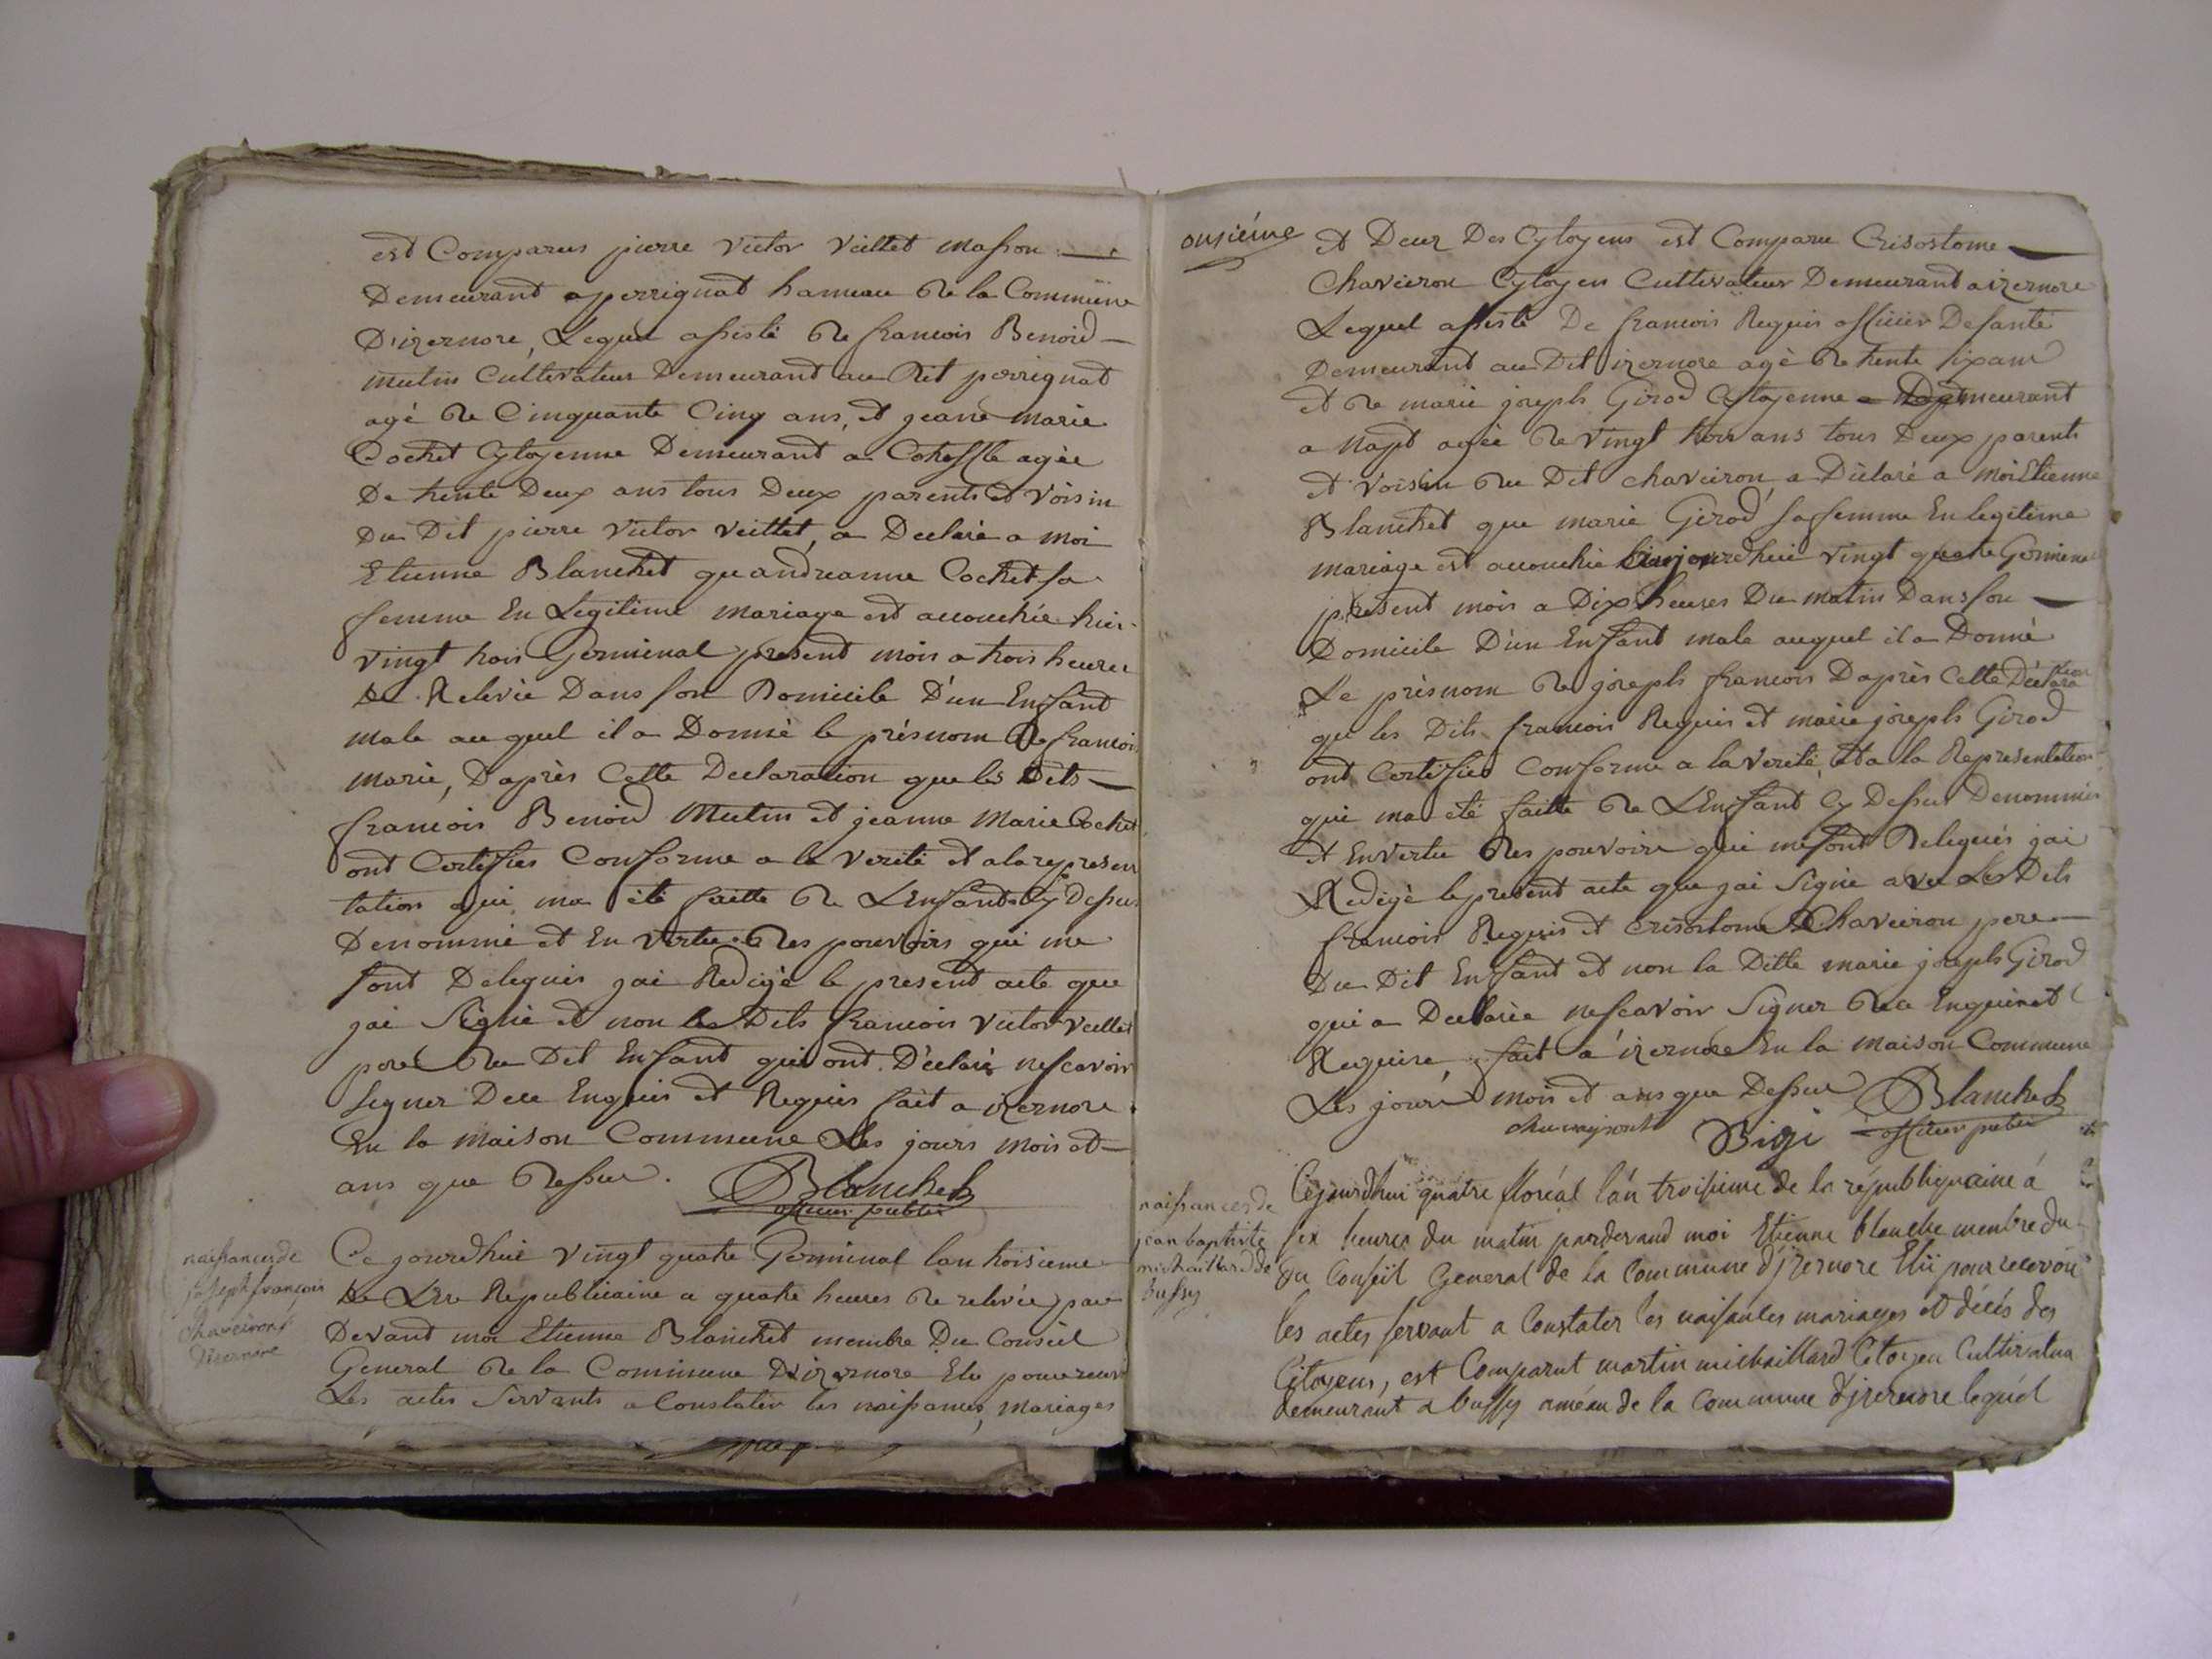 est Comparus pierre victor veillet masson
Demeurant a perrignat hameau de la Commune
D'izernore, Lequel assisté de francois Benoid
mutin Cultivateur Demeurant au dit perrignat
agé de Cinquante Cinq ans, et jeane marie
Cochet Cytoyenne Demeurant a agée
De trente Deux ans tous Deux parents et voisin
Du Dit pierre victor veillet, a Declaré a moi
Etienne Blanchet qu andreanne Cochet sa
femme En Legitime mariage est accouchée hier
vingt trois Germinal present mois a trois heures
de Relevée Dans son Domicile D'un Enfant
male au quel il a Donné le présnom De francois
marie, D'après Cette Declaration que les Dits
francois Benoid Mutin et jeanne Marie Cochet
ont Certifiés Conforme a la verité et a la represen
tation qui ma été faitte de L'Enfant Cy Dessus
Denommé et En vertu des pouvoirs qui me
sont Delegués jai Redigé le present acte que
jai Signé et non les Dits francois victor veillet
pere du Dit Enfant qui ont Déclaré nescavoir
signer Dece Enquis et Requis fait a izernore
En la maison Commune Les jours mois et
ans que dessus. Blanchet
officier public
naissances de
joseph françois
Chaveiront
Dizernore
Ce jourdhui vingt quatre Germinal lan troisieme
de L'Ere Republicaine a quatre heures de relevée par
Devant moi Etienne Blanchet membre Du Conseil
General de la Commune D'izernore Elu pour recevoir
Les actes Servants a Constater les naissances, mariages
onsiéme
et Decez Des Cytoyens est Comparu Crisostome
Chaveiron Cytoyen Cultivateur Demeurant a izernore
Lequel assisté De francois Reguis officier De santé
Demeurant au Dit izernore agé de trente six ans
et de marie joseph Girod Cytoyenne Demeurant
a Napt agée de vingt trois ans tous Deux parents
et voisin du Dit chaveiron a Déclaré a moi Etienne
Blanchet que marie Girod sa femme En legitime
mariage est accouchée aujourdhui vingt quatre Germinal
present mois a Dix heures Du matin Dans son
Domicile D'un Enfant male auquel il a Donné
Le présnom de joseph francois D'après Cette Déclaration
que les Dits francois Reguis et marie joseph Girod
ont Certifiés Conforme a la verité, et a la Representation
qui ma été faitte de L'Enfant Cy Dessus Denommé
et En vertu des pouvoirs qui me sont Delegués jai
Redigé le present acte que jai Signé avec Les Dits
francois Reguis et Crisostome Chaveiron pere
Du Dit Enfant et non la Ditte marie joseph Girod
qui a Declarée nescavoir Signer de ce Enquise et
Requise, fait a izernore En la maison Commune
Les jours mois et ans que Dessus Blanchet
officier public
naissances de
jean baptiste
michaillard de
bussy
Cejourdhui quatre floréal lán troisieme de la républiquaine á
six heures du matin pardevand moi Etienne blanche membre du
du Conseil General de la Commune d'jzernore Elü pour recevoir
les actes servant a Constater les naissances mariages et décés des
Citoyens, est Comparut martin michaillard Citoyen Cultivateur
demeurant a bussy améau de la Commune d'jzernore lequél